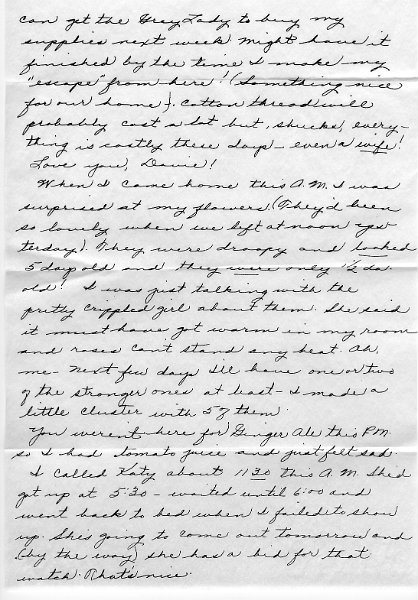 can get the Grey Lady to buy my
supplies next week might have it
finished by the time I make my
"escape" from here! (Something nice
for our home). Cotton thread will
probably cost a lot but, shucks, every-
thing is costly these days - even a wife!
Love you, Davie!
When I came home this A.M. I was
surprised at my flowers. (They'd been
so lovely when we left at noon yes-
terday). They were droopy and looked
5 days old and they were only 1½ da.
old! I was just talking with the
pretty crippled girl about them. She said
it must have got warm in my room
and roses can't stand any heat. Ah,
me - Next few days I'll have one or two
of the stronger ones at least - I made a
little cluster with 5 of them.
You weren't here for Ginger Ale this P.M.
so I had tomato juice and just felt sad.
I called Katy about 11:30 this A.M. She'd
got up at 5:30 - waited until 6:00 and
went back to bed when I failed to show
up. She's going to come out tomorrow and
(by the way) she has a bid for that
watch. That's nice.